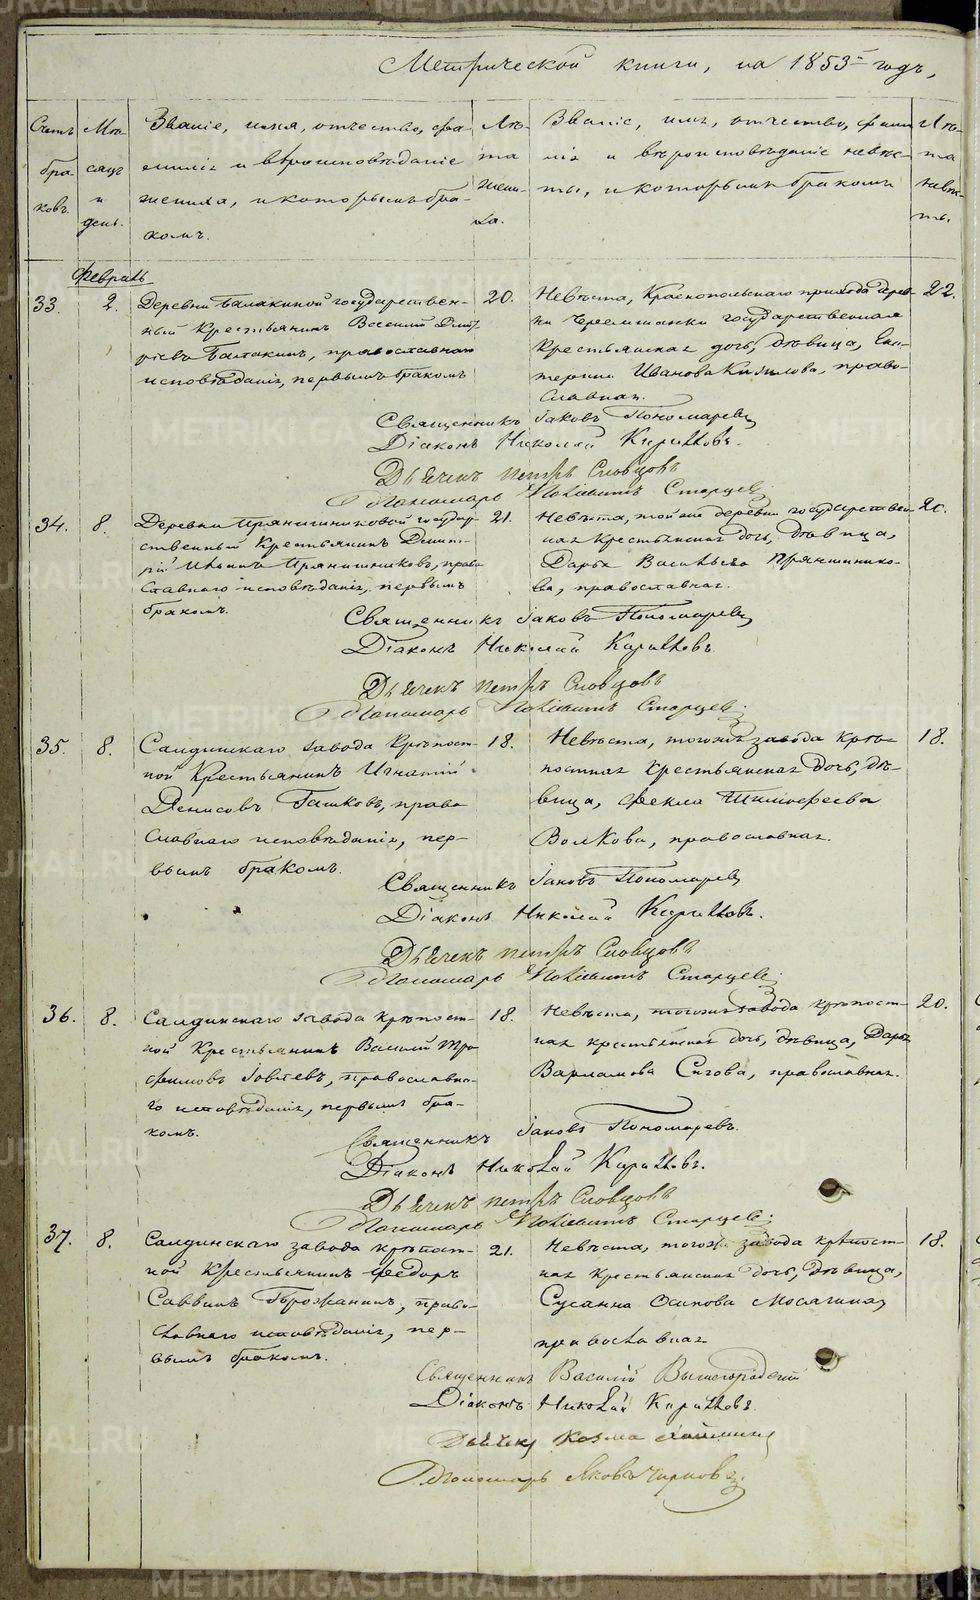 Метрической книги, на 1853й годъ,
Счетъ браковъ.
Мѣсяцъ и день.
Званіе, имя, отчество, фа-
милія и вѣроисповѣданіе
жениха, и которымъ бра-
комъ.
Лѣ-
та
жени-
ха.
Званіе, имя, отчество, фами-
лія и вѣроисповѣданіе невѣс-
ты, и которымъ бракомъ
Лѣ-
та
невѣс-
ты.
Февраль
33.
2.
Деревни Балакиной государствен-
ный крестьянинъ Василій Дмит-
ріевъ Балакинъ, православнаго
исповѣданія, первымъ бракомъ
20.
Невѣста, Краснопольскаго прихода дерев-
ни Черемшанки государственная
крестьянская дочь, дѣвица, Ека-
терина Иванова, право-
славная.
22.
Священникъ Іаковъ Пономаревъ
Діаконъ Николай Кирилловъ.
Дьячекъ Петръ Словцовъ
Пономарь Старцевъ.
34.
8.
Деревни Прянишниковой государ-
ственный крестьянинъ Димит-
рій Ильинъ Прянишниковъ, право-
славнаго исповѣданія, первымъ
бракомъ.
21.
Невѣста, той же деревни государствен-
ная крестьянская дочь, дѣвица,
Дарья Васильева Прянишнико-
ва, православная.
20.
Священникъ Іаковъ Пономаревъ
Діаконъ Николай Кирилловъ.
Дьячекъ Петръ Словцовъ
Пономарь Старцевъ.
35.
8.
Салдинскаго завода крѣпост-
ной крестьянинъ Игнатій
Денисовъ Гашковъ, право-
славнаго исповѣданія, пер-
вымъ бракомъ.
18.
Невѣста, тогожъ завода крѣ-
постная крестьянская дочь, дѣ-
вица, Фекла Тимофеева
Волкова, православная.
18.
Священникъ Іаковъ Пономаревъ
Діаконъ Николай Кирилловъ.
Дьячекъ Петръ Словцовъ
Пономарь Старцевъ.
36.
8.
Салдинскаго завода крѣпост-
ной крестьянинъ Василій Тро-
фимовъ Іовлевъ, православна-
го исповѣданія, первымъ бра-
комъ.
18.
Невѣста, тогожъ завода крѣпост-
ная крестьянская дочь, дѣвица, Дарья
Варламова Сигова, православная.
20.
Священникъ Іаковъ Пономаревъ.
Діаконъ Николай Кирилловъ.
Дьячекъ Петръ Словцовъ
Пономарь Старцевъ.
37.
8.
Салдинскаго завода крѣпост-
ной крестьянинъ Ѳедоръ
Саввинъ, право-
славнаго исповѣданія, пер-
вымъ бракомъ.
21.
Невѣста, тогожъ завода крѣпост-
ная крестьянская дочь, дѣвица,
Сусанна Осипова Мосягина,
православная
18.
Священникъ Василій
Діаконъ Николай Кирилловъ.
Дьячекъ Козма
Пономарь Яковъ Чирковъ.
METRIKI.GASO-URAL.RU